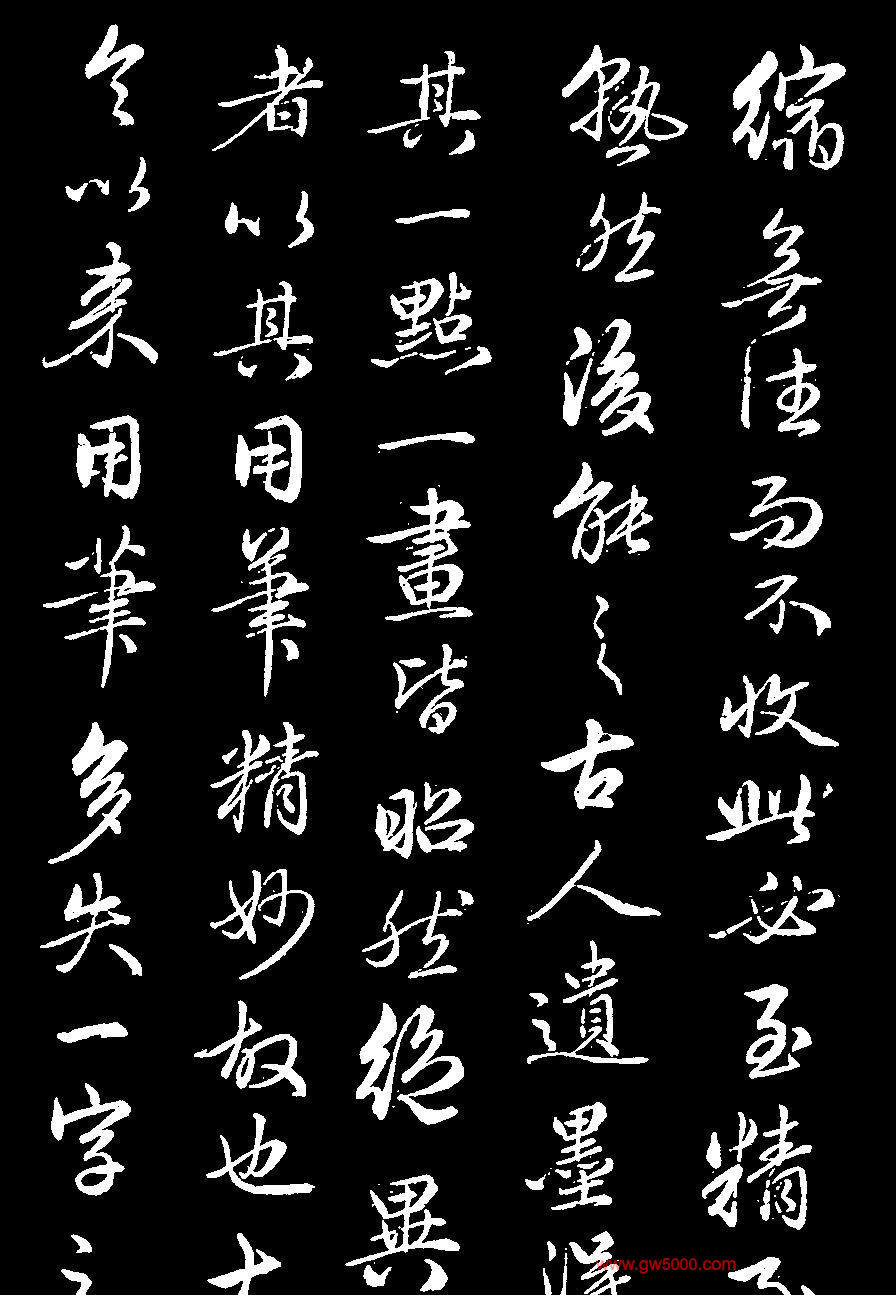 縮無往而不收此必至精至
熟然後能之古人遺墨得
其一點一畫皆昭然絕異
者以其用筆精妙故也大
令以来用筆多失一字之
www.gw5000.com